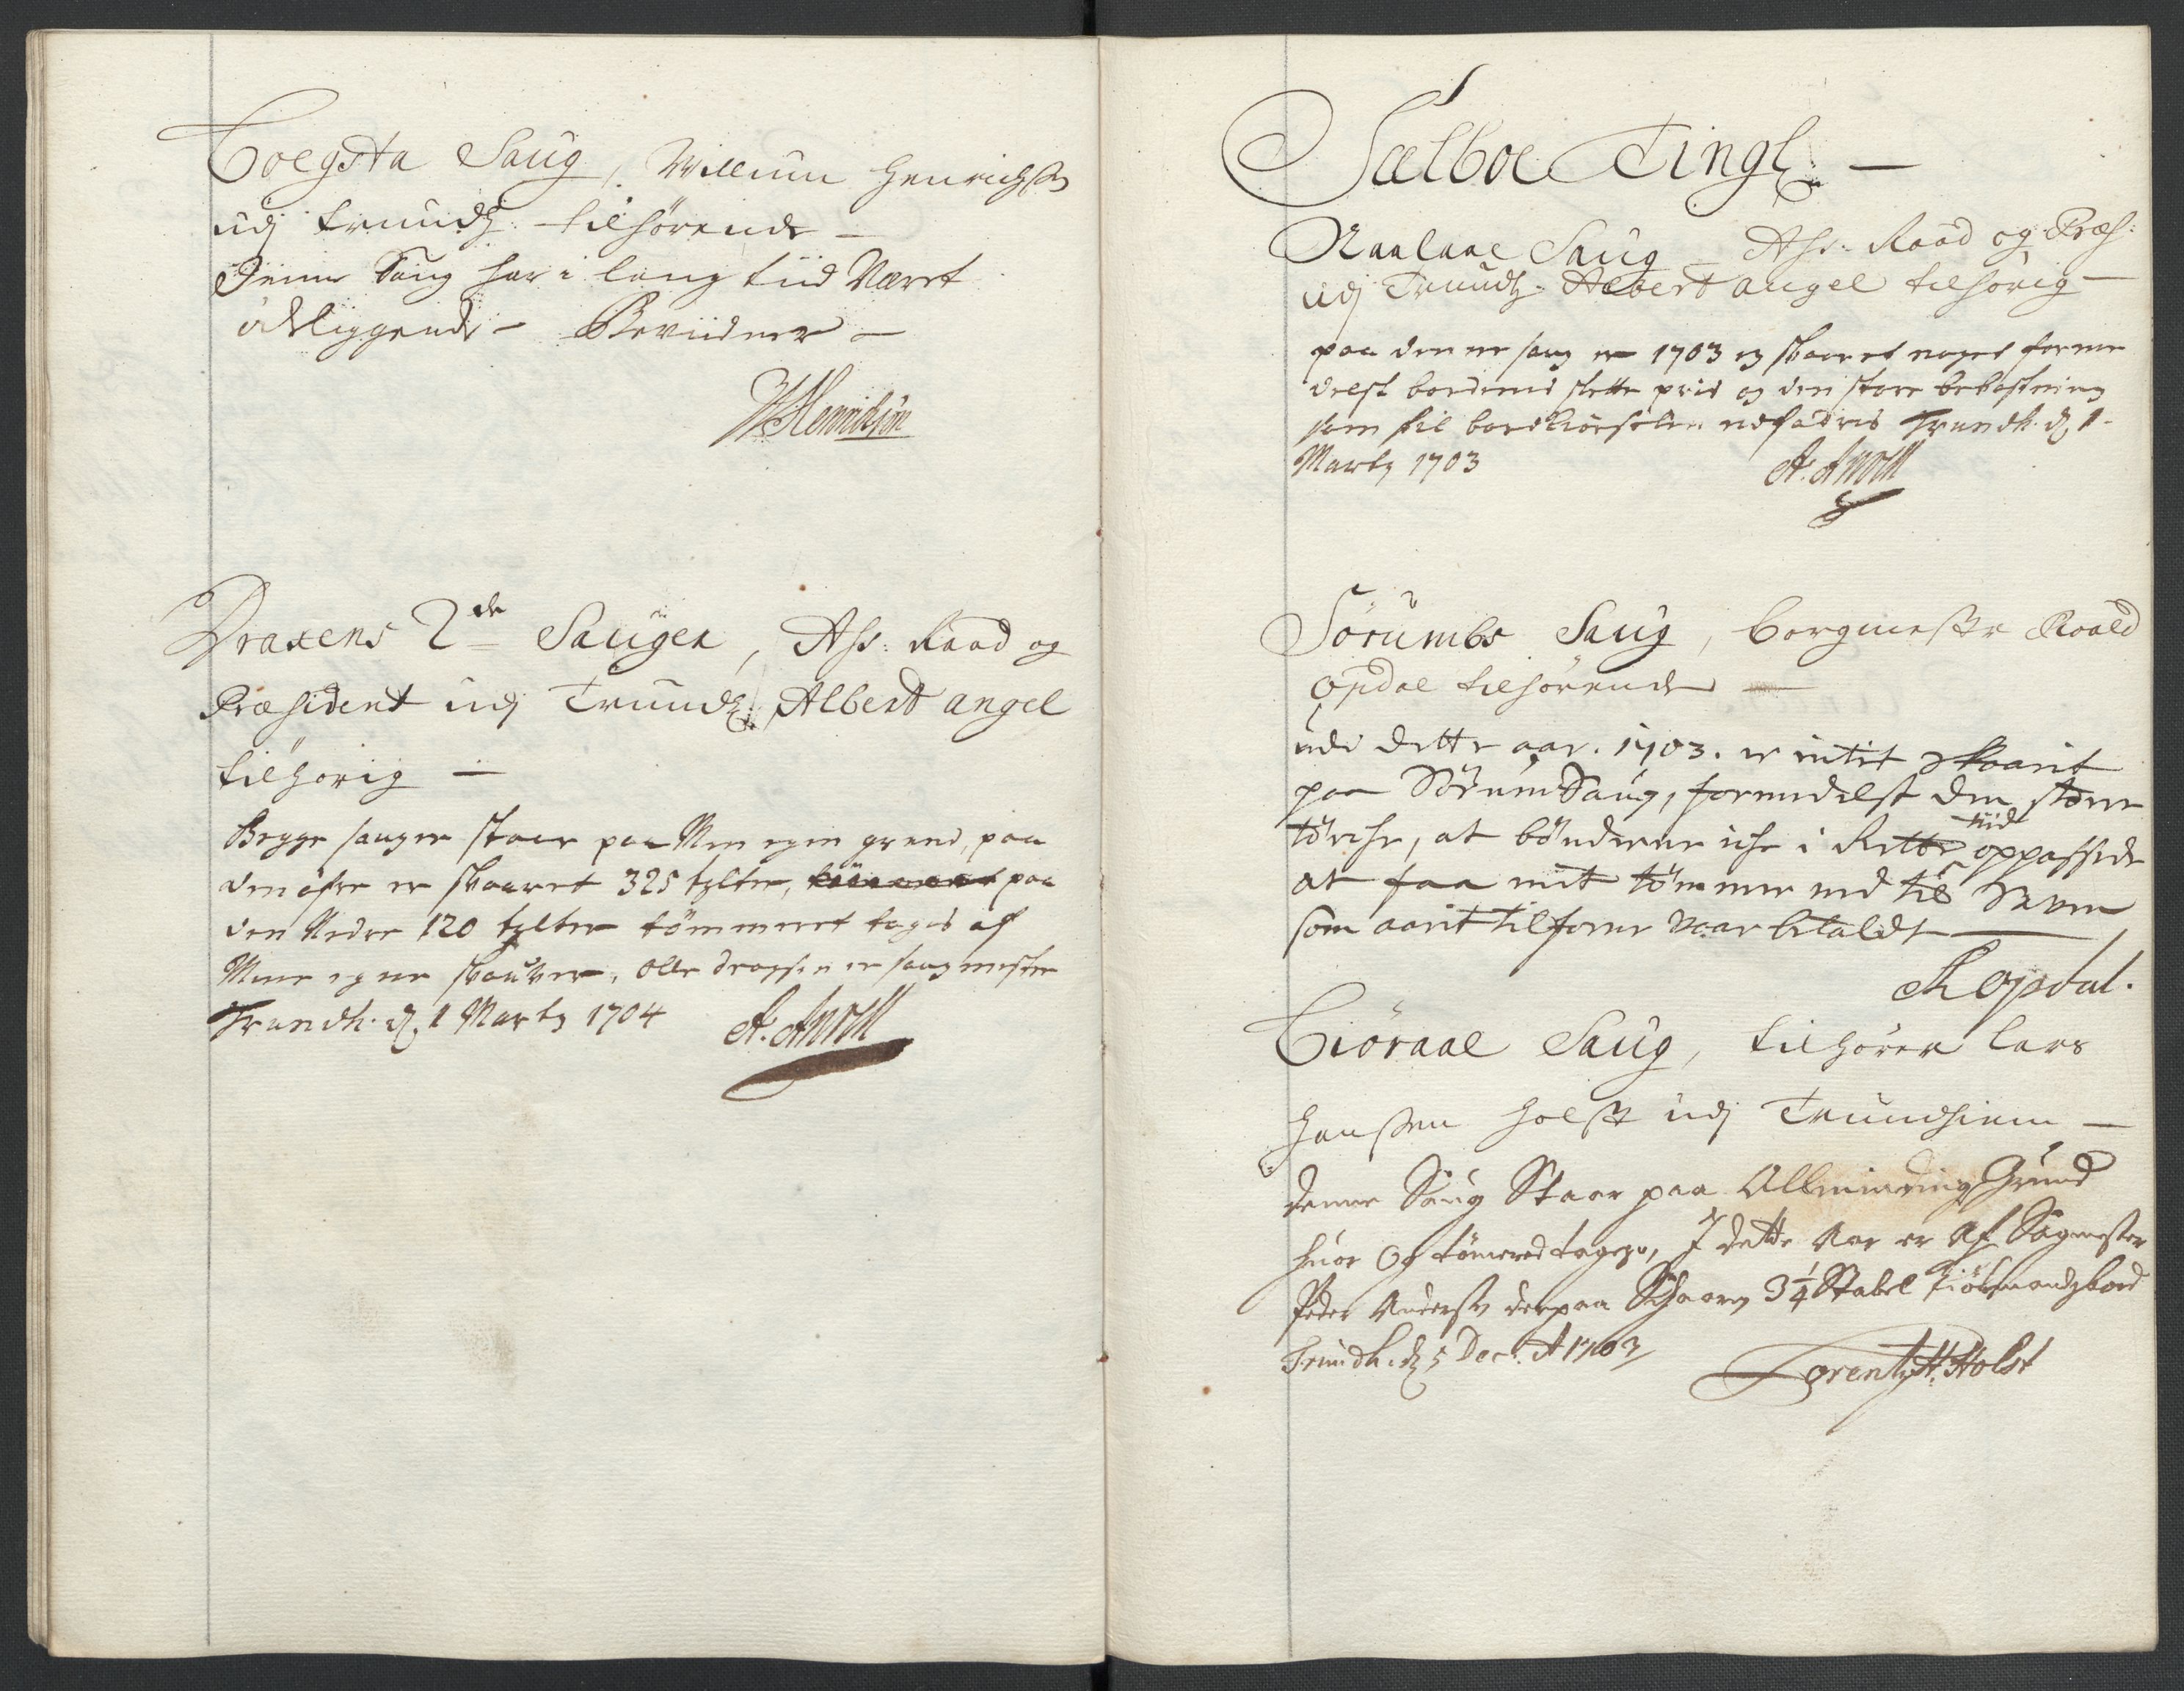 Saug, Willum Henrichsøn
udj Trundh: tilhørende —
Denne Saug har i lang tiid Været
ödeliggende — Beviidner —
WHenrichsøn
Draxens 2de Sauger, Ass: Raad og
Præsident udj Trundh: Albert angel
tilhørig —
Begge sauger staar paa Min egen grund, paa
den øfre er skaaret 325 tylter, paa
den Nedre 120 tylter tömmeret tages af
Mine egne skouver, Olle dragsten er saugmester
Trundh: d. 1 Marty 1704 A: Angell
Sælboe Tingl: —
Aaelaae Saug — Ass: Raad og Præs:
udj Trundh: Albert angel tilhørig —
paa denne saug er 1703 ej skaaret noget forme
delst bordenis slette priis og den store bekostning
som til bordkiørselen udfodris Trundh: d. 1
Marty 1703 A: Angell
Sörumbs Saug, borgmester Roald
opdal tilhørende —
udi dette aar. 1703. er intet skaarit
paa SörumSaug, formedelst den store
törche, at bönderne iche i Rette tid oppassede
at faa mit tömmer ned til Elven
som aarit tilforne vaar betaldt —
R opdal.
Saug, tilhører Lars
Hanssen Holst udj Trundhiem —
denne Saug Staar paa Allminding Grund
huor Og tömered tages, I dette Aar er Af Sagmester
Peder Anderss derpaa Schaaren 3 1/4 Stabel Kiöbmandsbord
Trundh: d. 5 Decr: A 1703
Lorentz H: Holst